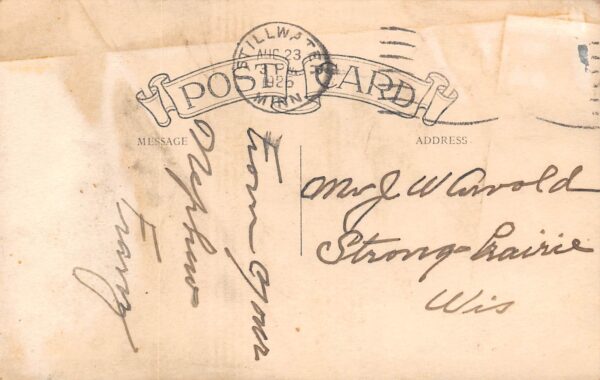 STILLWATER
AUG 23
3 PM
1925
MINN.
POST CARD
MESSAGE
ADDRESS
From Your
Nephew
Mr J W Arvold
Strong Prairie
Wis